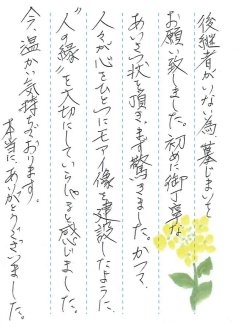 後継者がいない為墓じまいを
お願い致しました。初めに御丁寧な
あいさつ状を頂き、まず驚きました。かつて、
人々が心をひとつにモアイ像を建設したように、
"人の縁"を大切にしていらっしゃると感じました。
今、温かい気持ちでおります。
本当に、ありがとうございました。